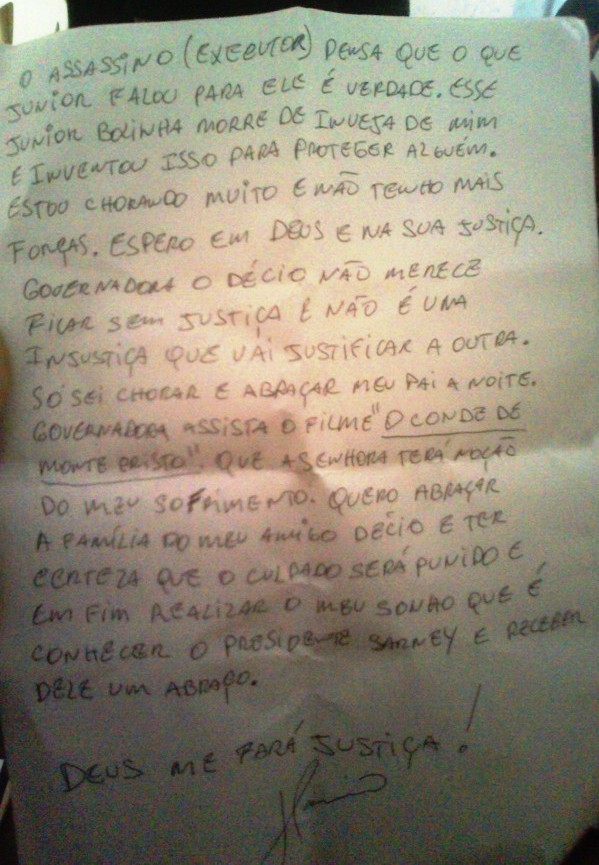 O ASSASSINO (EXECUTOR) PENSA QUE O QUE
JUNIOR FALOU PARA ELE É VERDADE. ESSE
JUNIOR BOLINHA MORRE DE INVEJA DE MIM
E INVENTOU ISSO PARA PROTEGER ALGUÉM.
ESTOU CHORANDO MUITO E NÃO TENHO MAIS
FORÇAS. ESPERO EM DEUS E NA SUA JUSTIÇA.
GOVERNADORA O DÉCIO NÃO MERECE
FICAR SEM JUSTIÇA E NÃO É UMA
INJUSTIÇA QUE VAI JUSTIFICAR A OUTRA.
SÓ SEI CHORAR E ABRAÇAR MEU PAI A NOITE.
GOVERNADORA ASSISTA O FILME "O CONDE DE
MONTE CRISTO". QUE A SENHORA TERÁ NOÇÃO
DO MEU SOFRIMENTO. QUERO ABRAÇAR
A FAMÍLIA DO MEU AMIGO DÉCIO E TER
CERTEZA QUE O CULPADO SERÁ PUNIDO E
EM FIM REALIZAR O MEU SONHO QUE É
CONHECER O PRESIDENTE SARNEY E RECEBER
DELE UM ABRAÇO.
DEUS ME FARÁ JUSTIÇA!